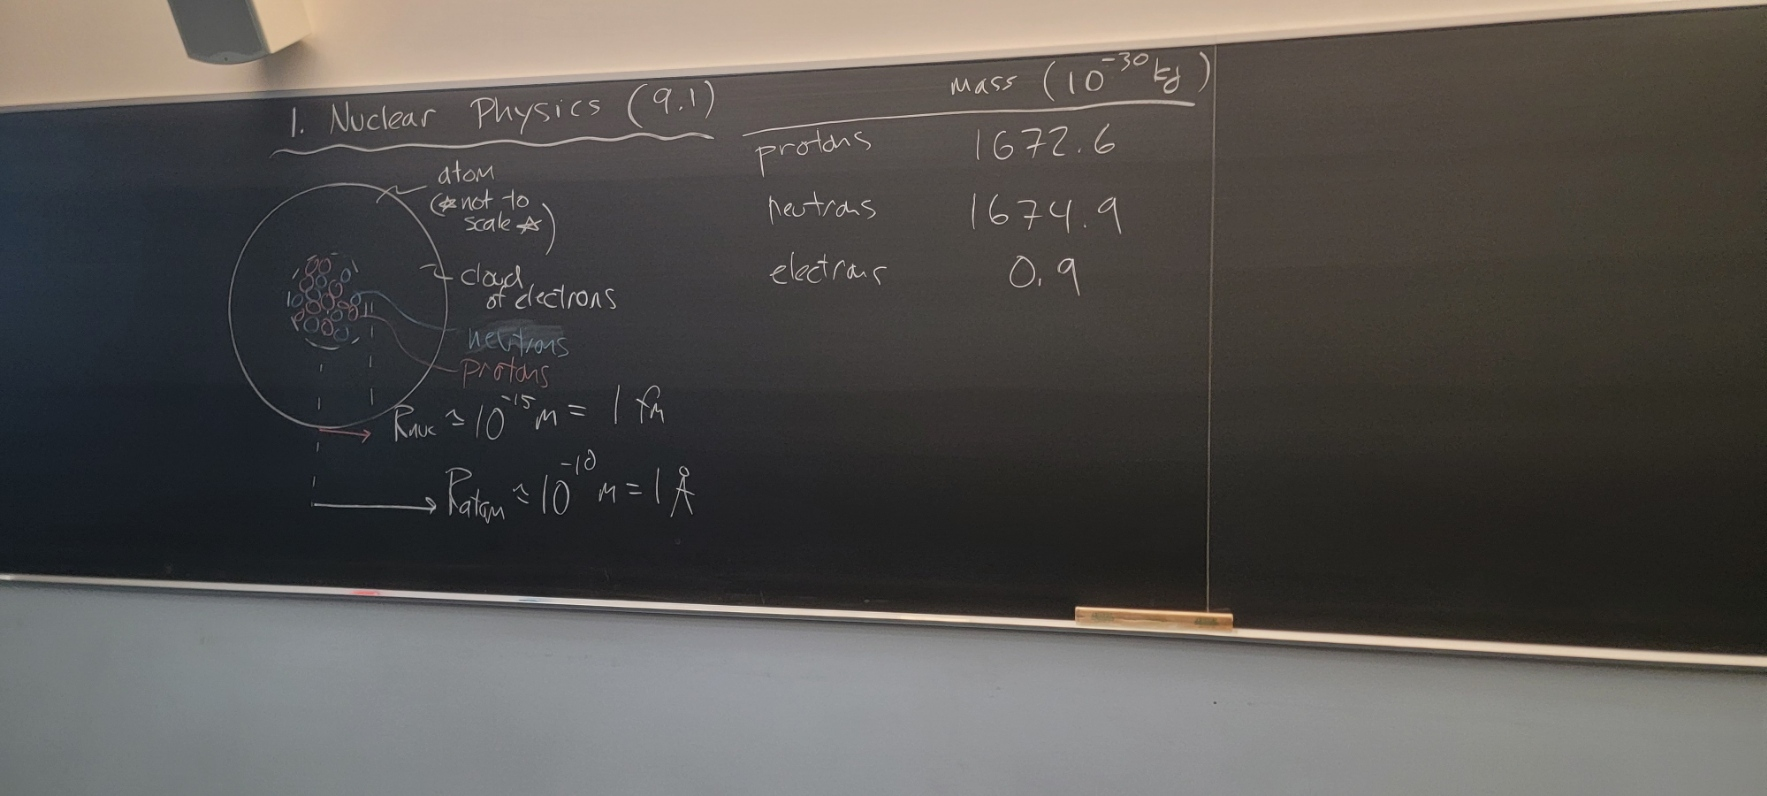 1. Nuclear Physics (9.1)
atom
(☆not to
scale☆)
cloud
of electrons
neutrons
protons
Rnuc ≈ 10⁻¹⁵ m = 1 fm
Ratom ≈ 10⁻¹⁰ m = 1 Å
mass (10⁻³⁰ kg)
protons 1672.6
neutrons 1674.9
electrons 0.9